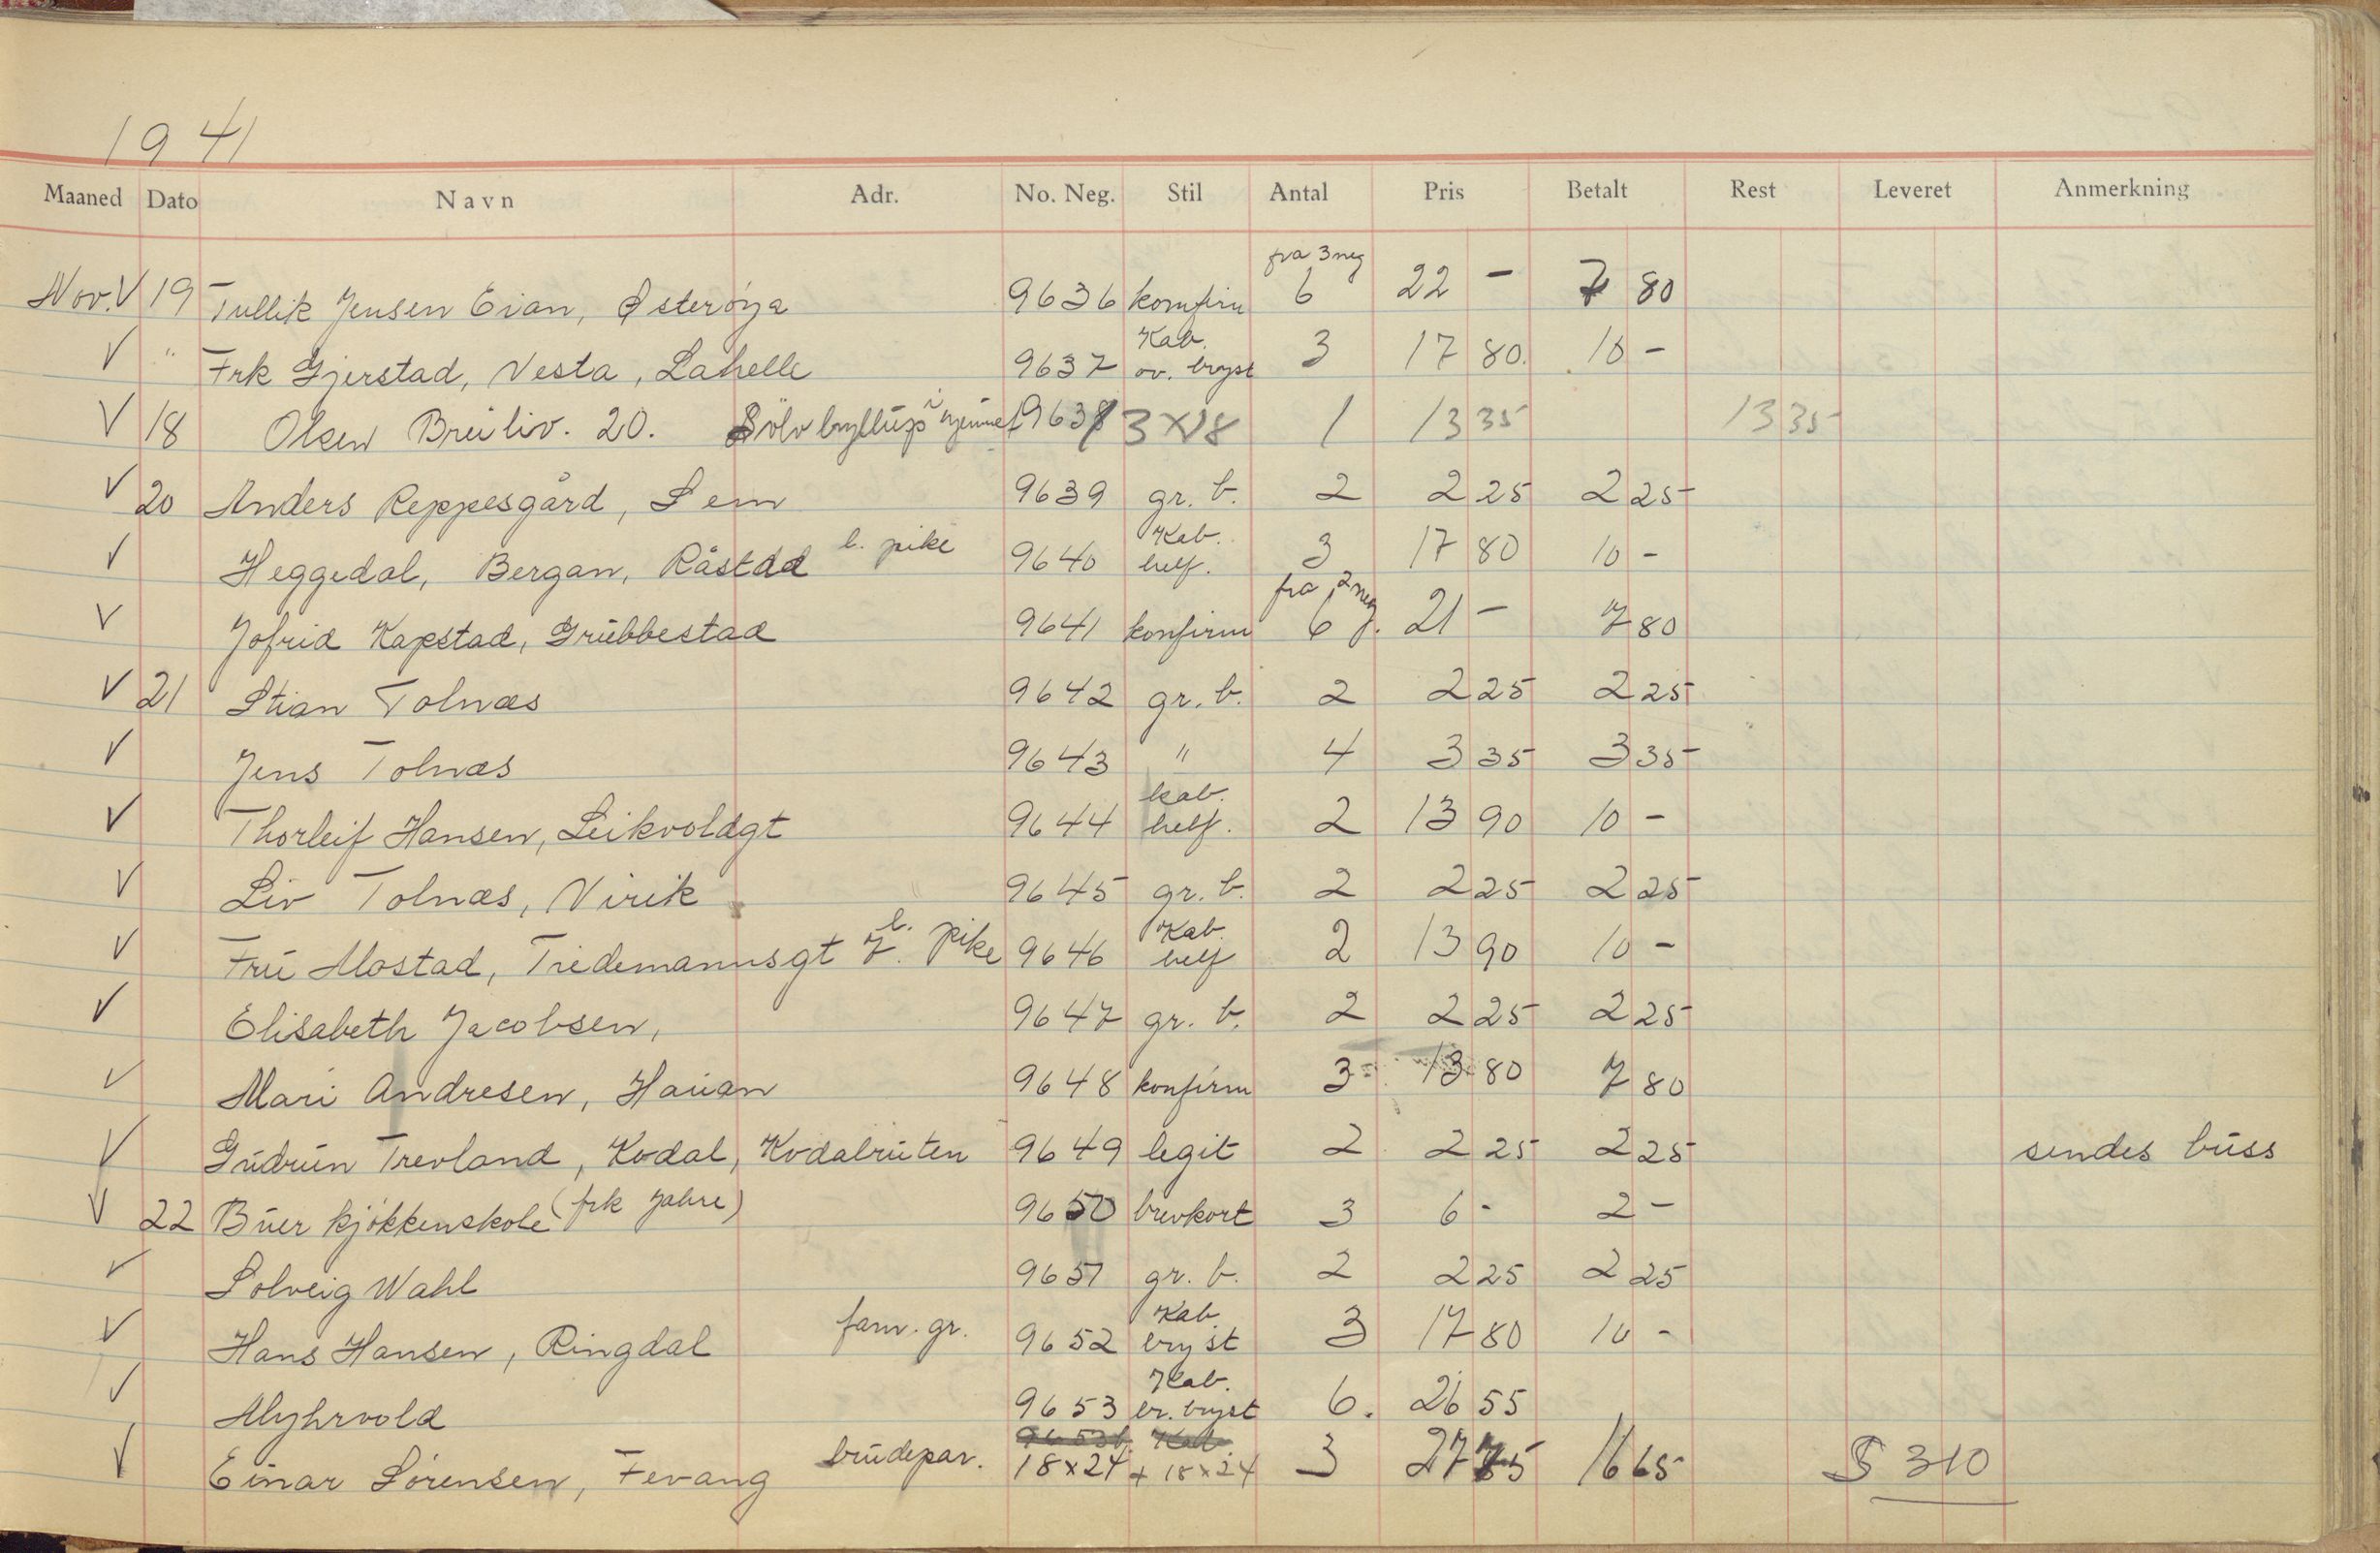 1941
Maaned Dato Navn Adr. No. Neg. Stil Antal Pris Betalt Rest Leveret Anmerkning
fra 3 neg
Nov. V 19 Tullik Jensen Eian, Østerøya 9636 komfirm 6 22 - 7 80
Kab.
V " Frk Gjerstad, Vesta, Lahelle 9637 ov. bryst 3 17 80. 10 -
V 18 Olsen Breiliv. 20. Sölvbryllup i hjemmet 9638 3 X 18 1 13 35 13 35
V 20 Anders Reppesgård, Sem 9639 gr. b. 2 2 25 2 25
Kab.
V Heggedal, Bergan, Råstad l. pike 9640 helf. 3 17 80 10 -
fra 2 neg
V Jofrid Kapstad, Grubbestad 9641 konfirm 6 21 - 7 80
V 21 Stian Tolnæs 9642 gr. b. 2 2 25 2 25
V Jens Tolnæs 9643 " 4 3 35 3 35
kab.
V Thorleif Hansen, Leikvoldgt 9644 helf. 2 13 90 10 -
V Liv Tolnæs, Virik 9645 gr. b. 2 2 25 2 25
Kab.
V Fru Mostad, Tiedemannsgt 7. l. pike 9646 helf 2 13 90 10 -
V Elisabeth Jacobsen, 9647 gr. b. 2 2 25 2 25
V Mari Andresen, Hauan 9648 konfirm 3 13 80 7 80
V Gudrun Trevland, Kodal, Kodalruten 9649 legit 2 2 25 2 25 sendes buss
V 22 Buer kjøkkenskole (frk Jahre) 9650 brevkort 3 6 - 2 -
V Solveig Wahl 9651 gr. b. 2 2 25 2 25
Kab
V Hans Hansen, Ringdal fam. gr. 9652 bryst 3 17 80 10 -
Kab.
V Myhrvold 9653 br. bryst 6. 26 55
V Einar Sörensen, Fevang brudepar. 18 x 24 + 18 x 24 3 27 75 16 65 S 310